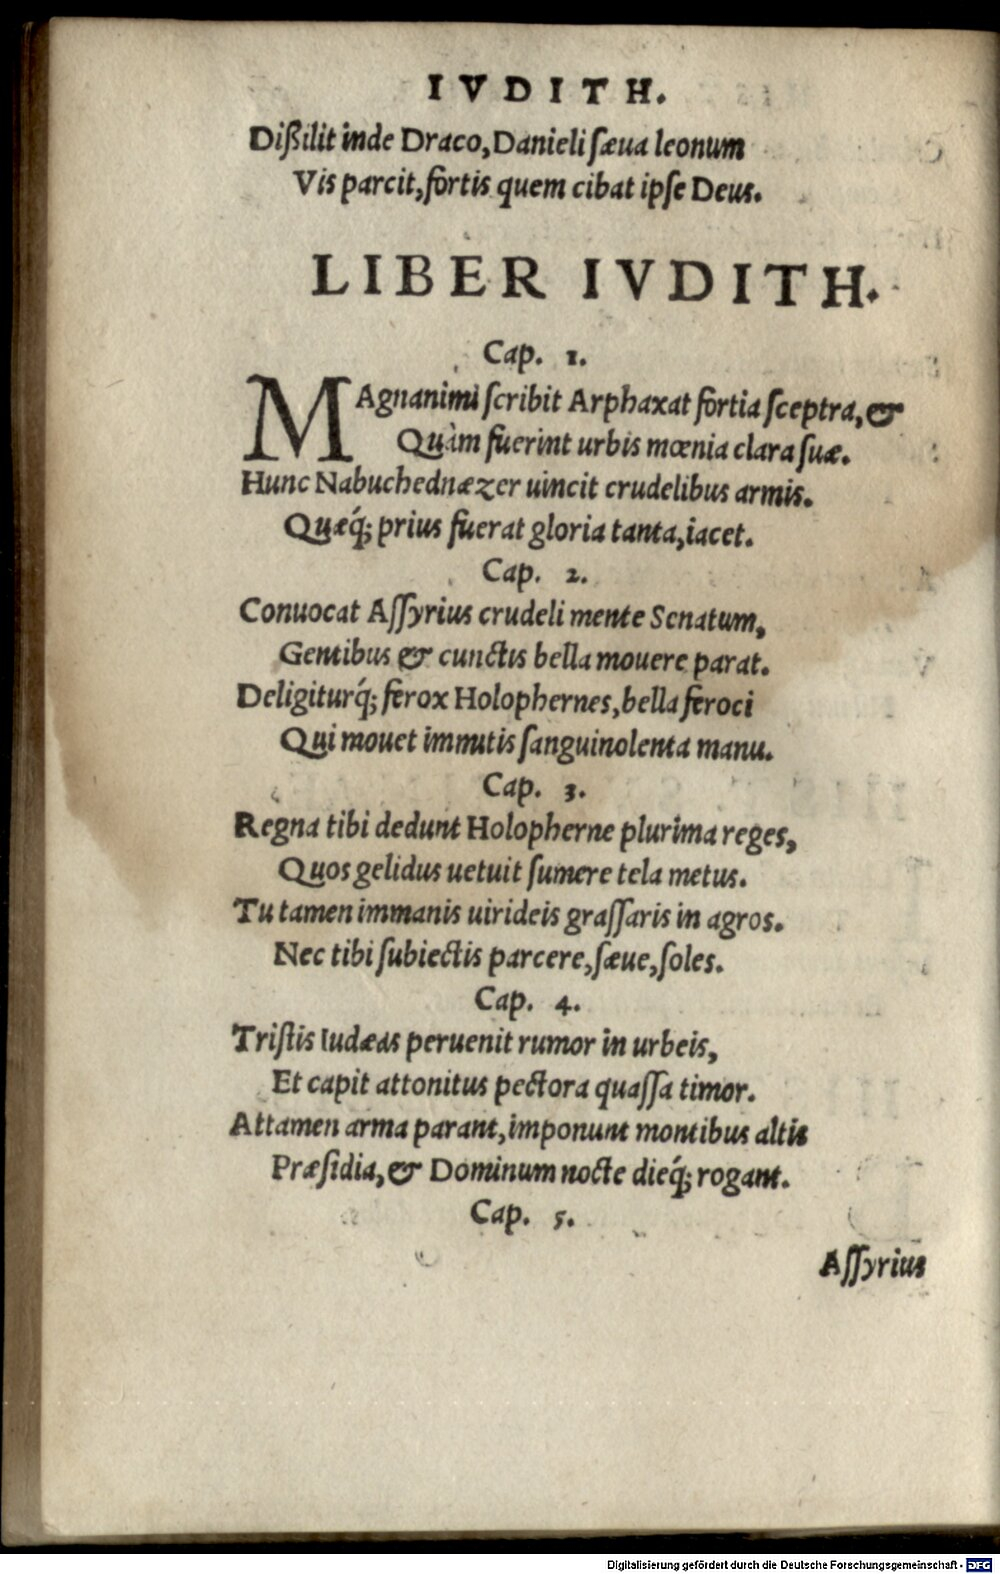 IVDITH.
Dißilit inde Draco, Danieli ſæua leonum
Vis parcit, fortis quem cibat ipſe Deus.
LIBER IVDITH.
Cap. 1.
MAgnanimi ſcribit Arphaxat fortia ſceptra, &
Quàm fuerint urbis mœnia clara ſuæ.
Hunc Nabuchednæzer uincit crudelibus armis.
Quæq́; prius fuerat gloria tanta, iacet.
Cap. 2.
Conuocat Aſſyrius crudeli mente Senatum,
Gentibus & cunctis bella mouere parat.
Deligiturq́; ferox Holophernes, bella feroci
Qui mouet immitis ſanguinolenta manu.
Cap. 3.
Regna tibi dedunt Holopherne plurima reges,
Quos gelidus uetuit ſumere tela metus.
Tu tamen immanis uirideis graſſaris in agros.
Nec tibi ſubiectis parcere, ſæue, ſoles.
Cap. 4.
Triſtis Iudæas peruenit rumor in urbeis,
Et capit attonitus pectora quaſſa timor.
Attamen arma parant, imponunt montibus altis
Præſidia, & Dominum nocte dieq́; rogant.
Cap. 5.
Aſſyrius
Digitalisierung gefördert durch die Deutsche Forschungsgemeinschaft - DFG